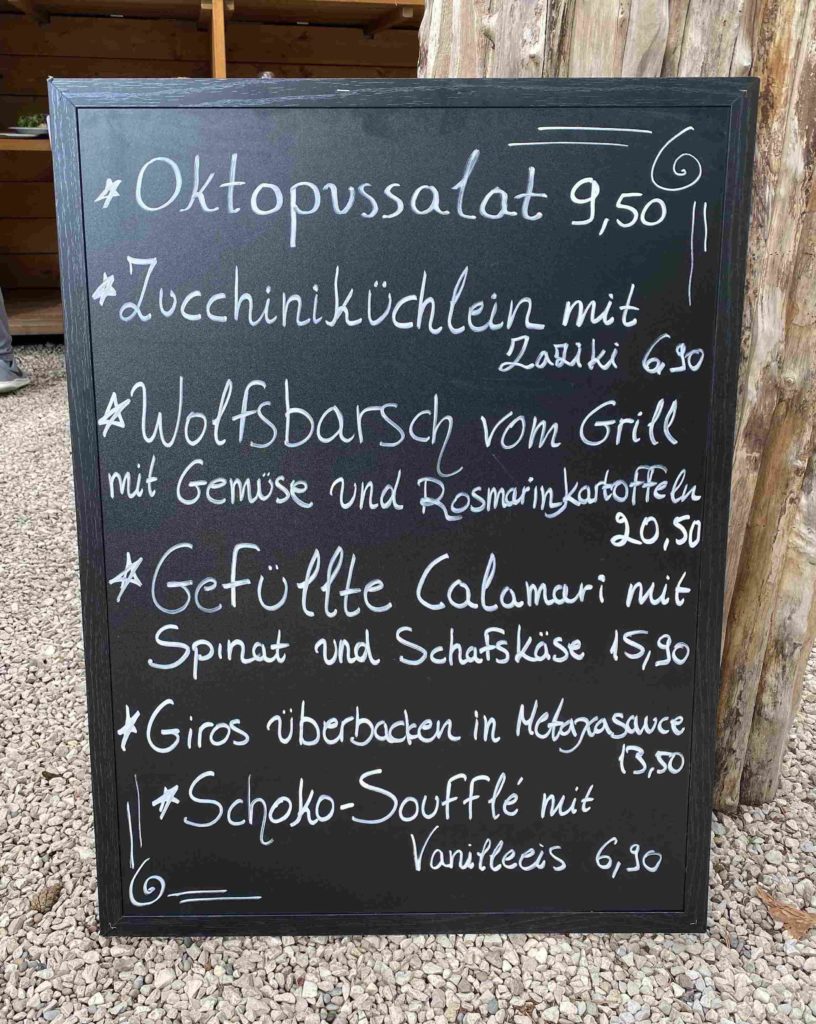 * Oktopussalat 9,50
* Zucchiniküchlein mit
Zaziki 6,90
* Wolfsbarsch vom Grill
mit Gemüse und Rosmarinkartoffeln
20,50
* Gefüllte Calamari mit
Spinat und Schafskäse 15,90
* Giros überbacken in Metaxasauce
13,50
* Schoko-Soufflé mit
Vanilleeis 6,90